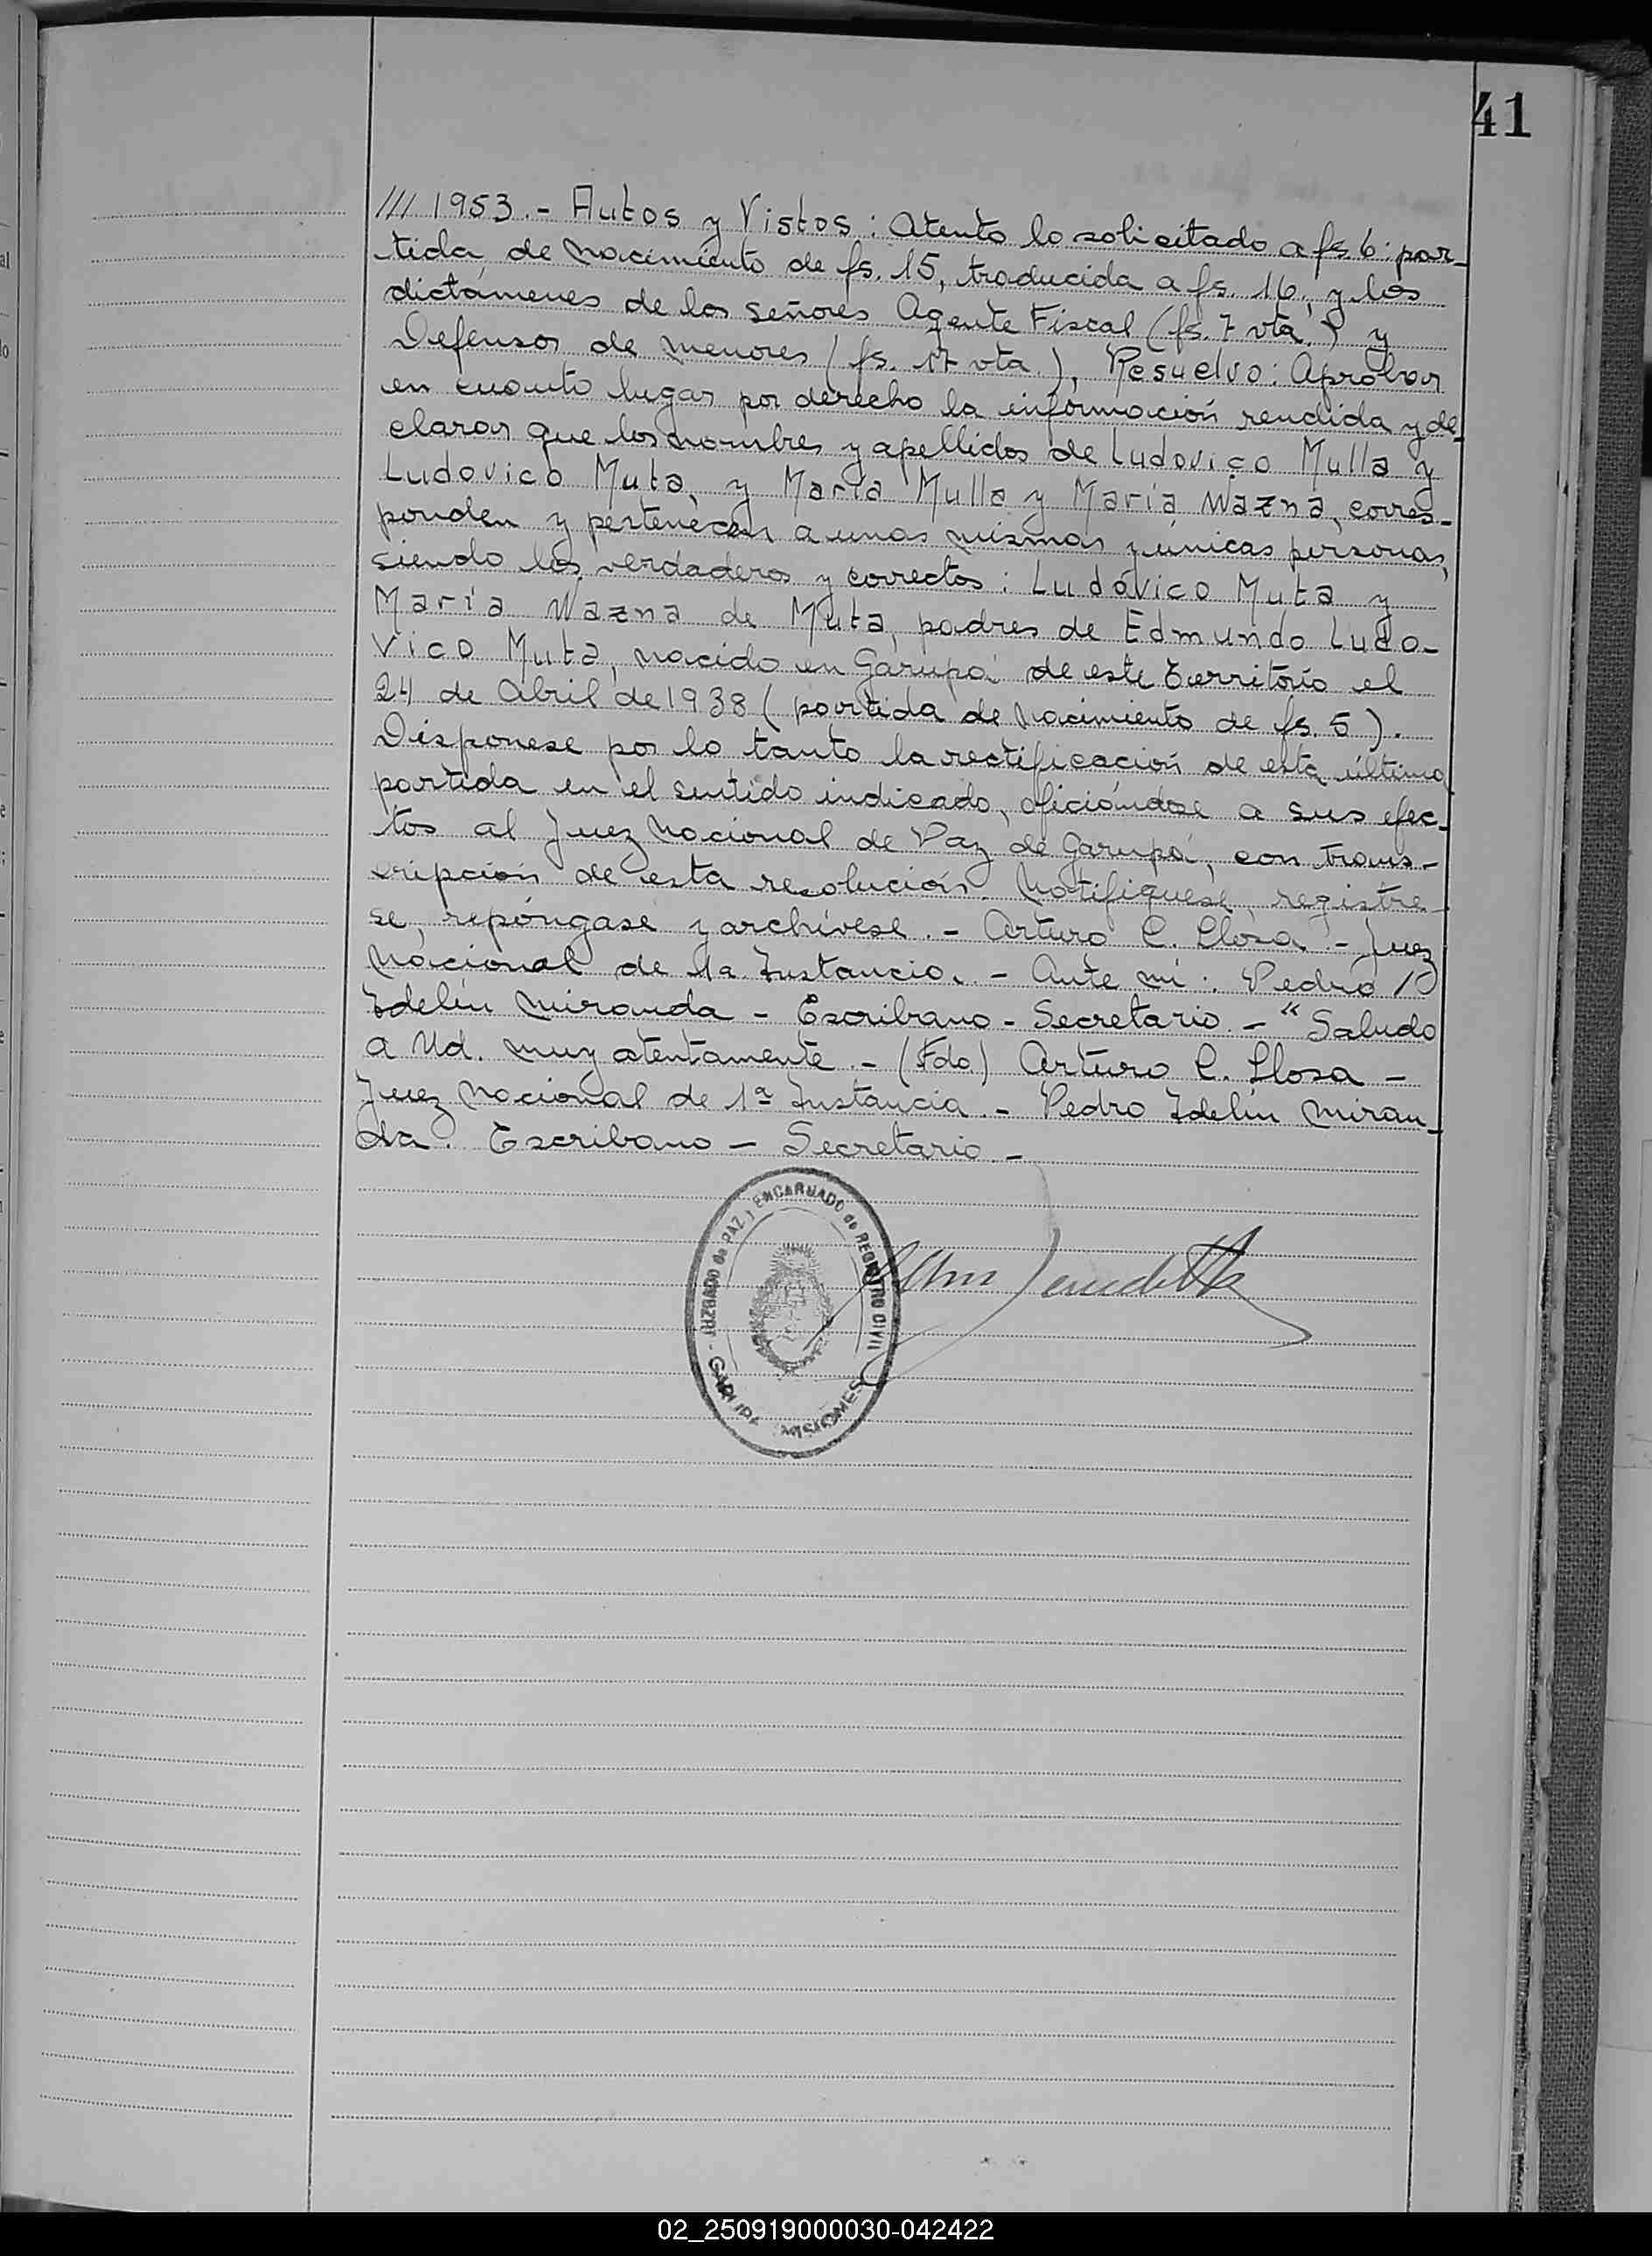 41
/// 1953.- Autos y Vistos: Atento lo solicitado a fs. 6: par-
tida de nacimiento de fs. 15, traducida a fs. 16, y los
dictámenes de los señores Agente Fiscal (fs. 7 vta.) y
Defensor de menores (fs. 17 vta.), Resuelvo: Aprobar
en cuanto lugar por derecho la información rendida y de-
clarar que los nombres y apellidos de Ludovico Mulla y
Ludovico Muta, y María Mulla y María Wazna, corres-
ponden y pertenecen a unas mismas y únicas personas,
siendo los verdaderos y correctos: Ludovico Muta y
María Wazna de Muta, padres de Edmundo Ludo-
vico Muta, nacido en Garupá de este territorio el
24 de Abril de 1938 (partida de nacimiento de fs. 5).
Disponese por lo tanto la rectificación de esta última
partida en el sentido indicado, oficiándose a sus efec-
tos al Juez Nacional de Paz de Garupá, con trans-
cripción de esta resolución. Notifíquese, registre-
se, repóngase y archívese.- Arturo C. Llosa - Juez
Nacional de 1a Instancia.- Ante mí: Pedro
Idelín Miranda - Escribano - Secretario.- "Saludo
a Ud. muy atentamente.- (Fdo) Arturo C. Llosa -
Juez Nacional de 1ª Instancia.- Pedro Idelín Miran-
da. Escribano - Secretario.-
JUZGADO de PAZ y ENCARGADO de REGISTRO CIVIL
- GARUPA MISIONES
02_250919000030-042422